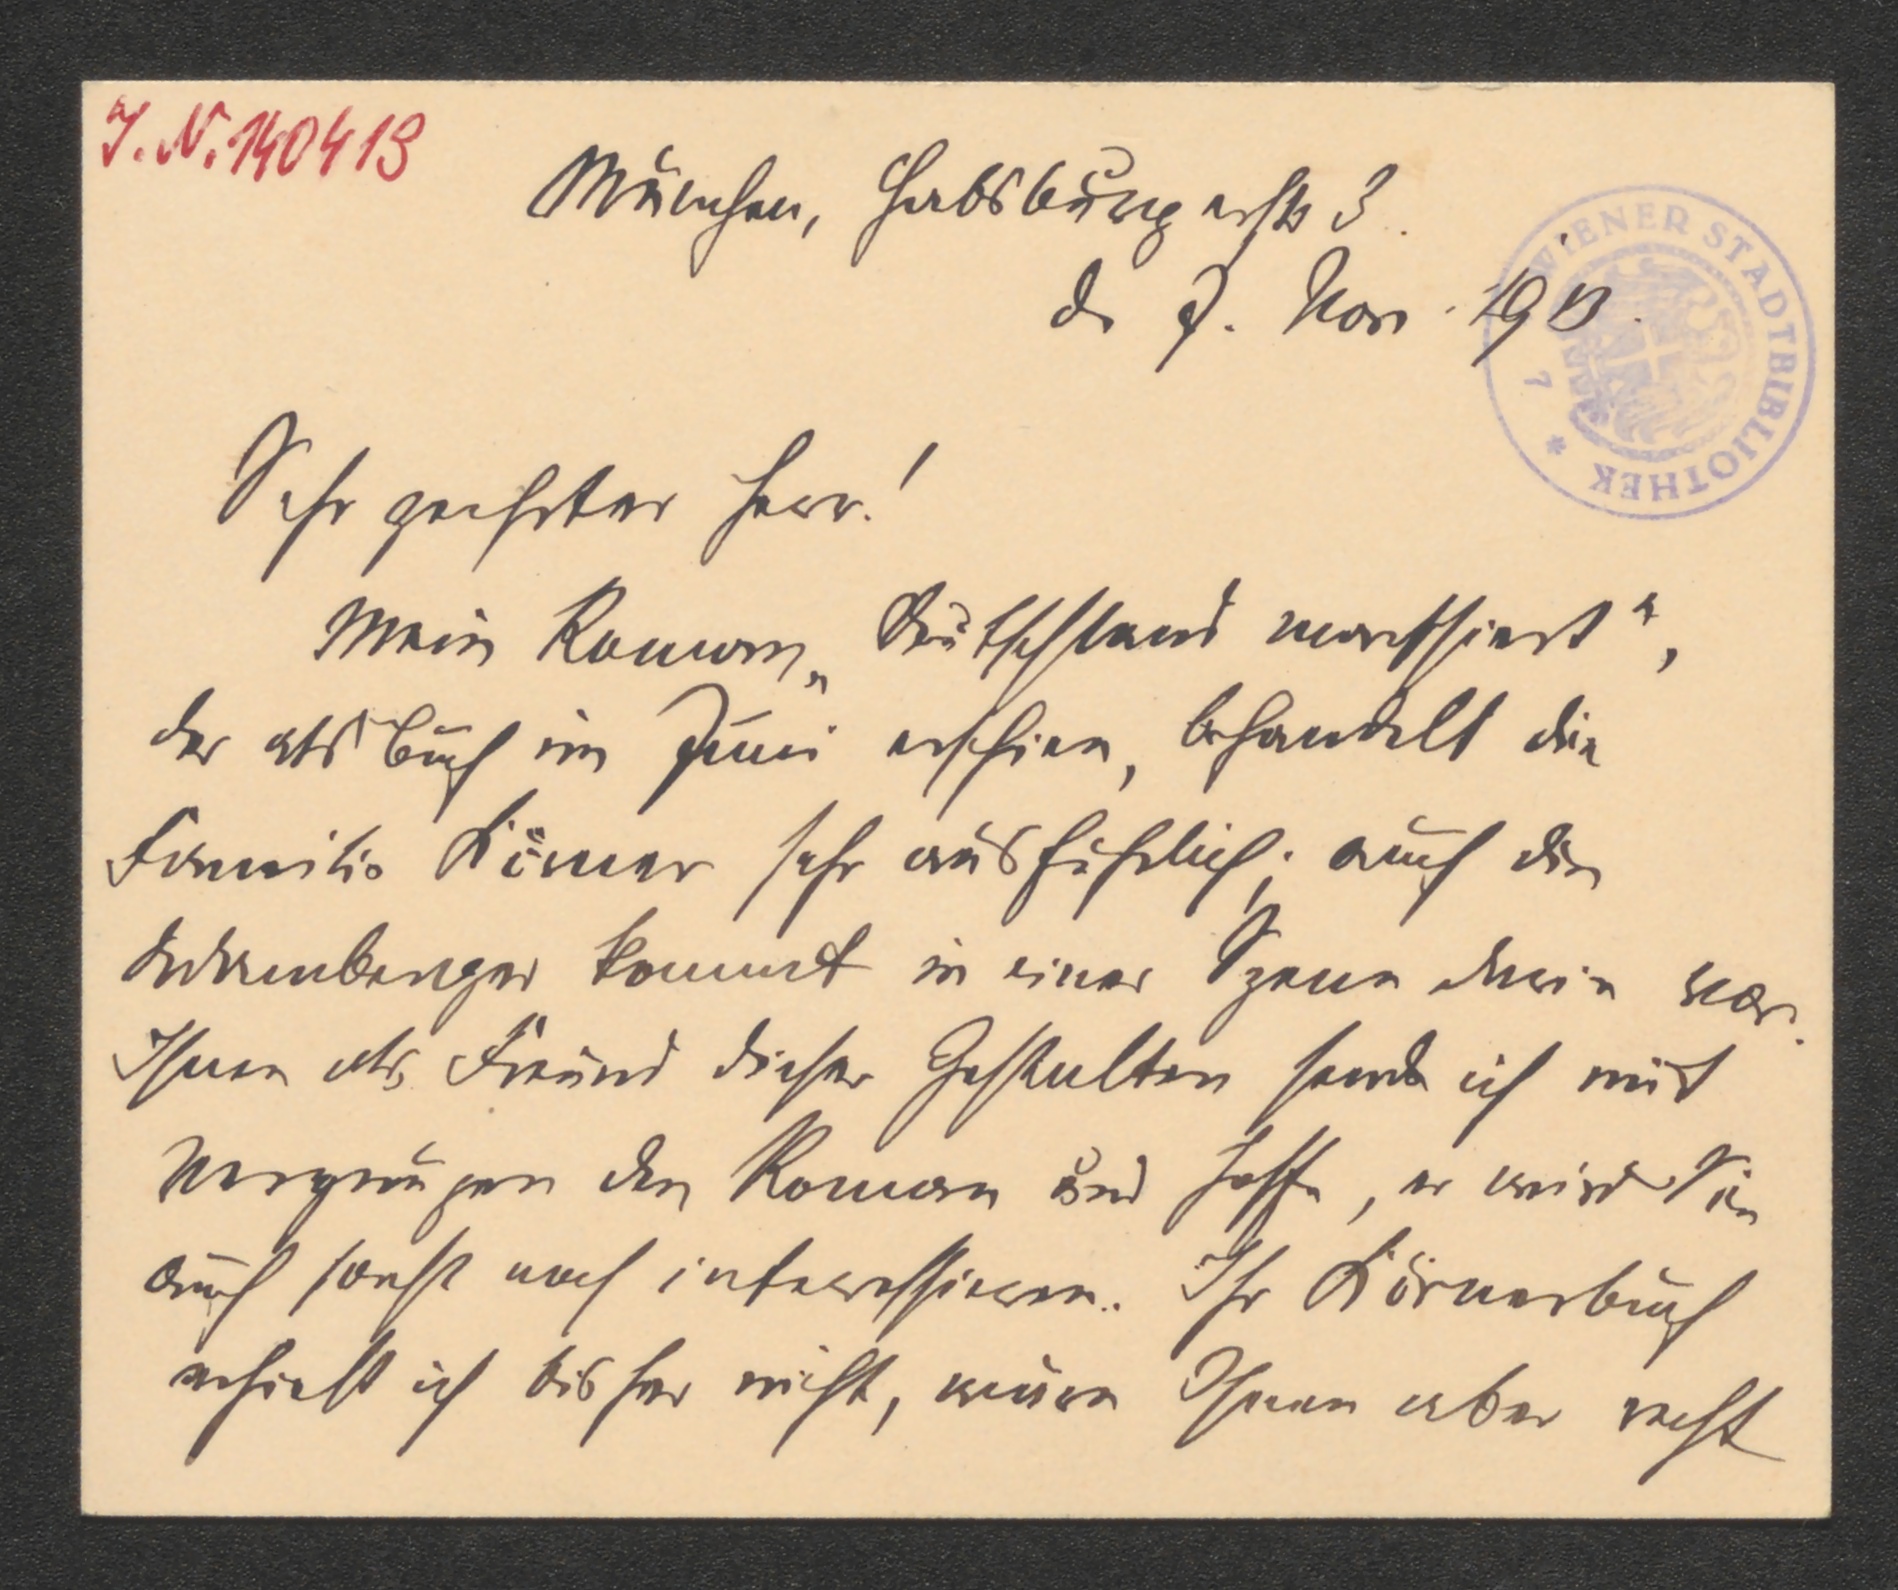 J.N. 140413
München, Habsburgerstr 3.
d. 7. Nov. 1913.
WIENER STADTBIBLIOTHEK
Sehr geehrter Herr!
Mein Roman „Deutschland marschiert",
der als Buch im Juni erschien, behandelt die
Familie Körner sehr ausführlich; auch die
Adamberger kommt in einer Szene darin vor.
Ihnen als Freund dieser Gestalten sende ich mit
Vergnügen den Roman und hoffe, er wird Sie
auch sonst noch interessieren. Ihr Körnerbuch
erhielt ich bisher nicht, wäre Ihnen aber recht